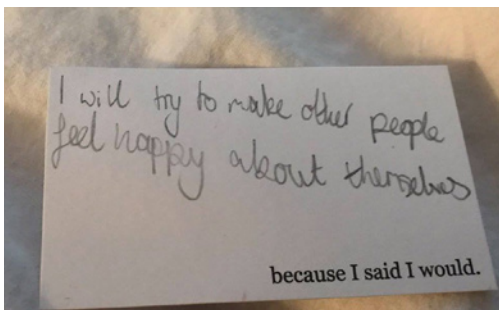 I will try to make other people
feel happy about themselves
because I said I would.